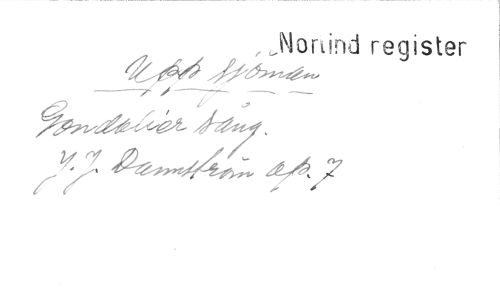 Norlind register
Upp sjöman
Gondolier sång.
J. J. Dannström op. 7